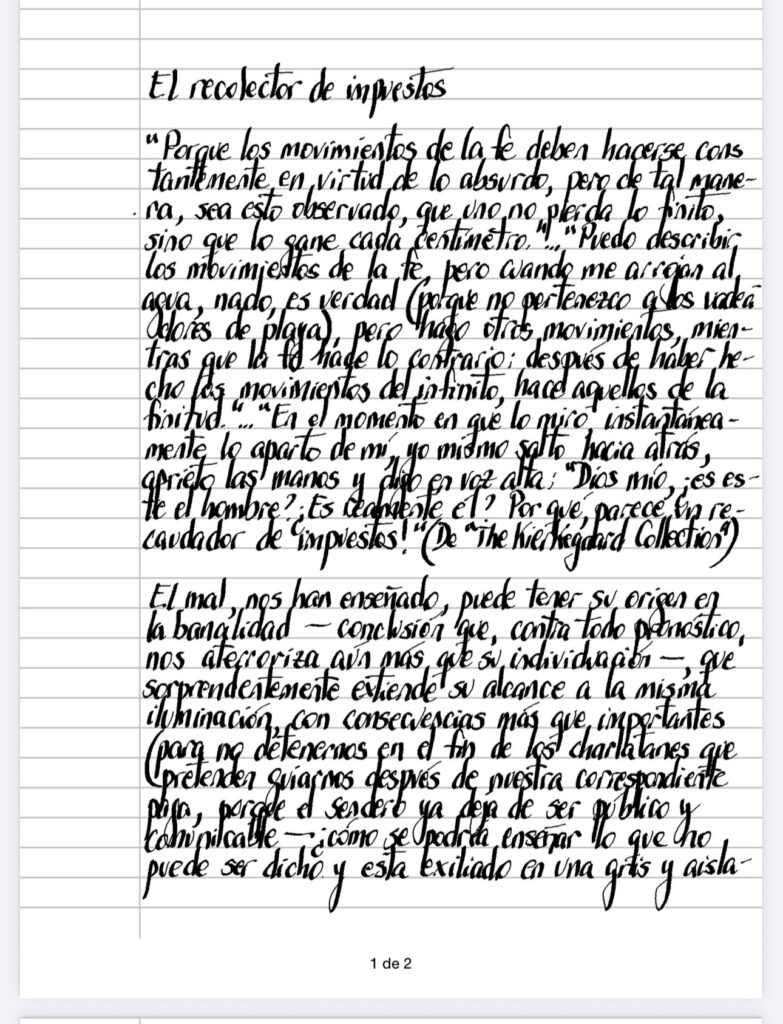 El recolector de impuestos
"Porque los movimientos de la fe deben hacerse cons
tantemente en virtud de lo absurdo, pero de tal mane-
ra, sea esto observado, que uno no pierda lo finito,
sino que lo gane cada centímetro."..."Puedo describir
los movimientos de la fe, pero cuando me arrojan al
agua, nado, es verdad (porque no pertenezco a los vadea
dores de playa), pero hago otros movimientos, mien-
tras que la fe hace lo contrario: después de haber he-
cho los movimientos del infinito, hace aquellos de la
finitud."..."En el momento en que lo miro, instantánea-
mente lo aparto de mí, yo mismo salto hacia atrás,
aprieto las manos y digo en voz alta: "Dios mío, ¿es es-
te el hombre? ¿Es realmente él? Por qué, parece un re-
caudador de impuestos!"(De "The Kierkegaard Collection")
El mal, nos han enseñado, puede tener su origen en
la banalidad — conclusión que, contra todo pronóstico,
nos aterroriza aún más que su individuación —, que
sorprendentemente extiende su alcance a la misma
iluminación, con consecuencias más que importantes
(para no detenernos en el fin de los charlatanes que
pretenden guiarnos después de nuestra correspondiente
paga, porque el sendero ya deja de ser público y
comunicable — ¿cómo se podría enseñar lo que no
puede ser dicho y está exiliado en una gris y aisla-
1 de 2